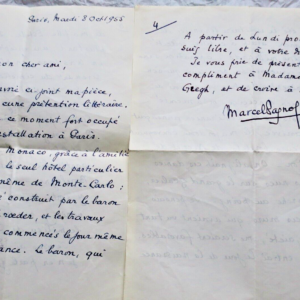 Paris, Mardi 3 Oct 1955
on cher ami,
ci joint ma pièce,
cune prétention littéraire.
ce moment fort occupé
stallation à Paris.
Monaco, grâce à l'amitié
le seul hôtel particulier
même de Monte-Carlo :
construit par le baron
rœder, et les travaux
commencés le jour même
ance. Le baron, qui
4
A partir de Lundi pro
suis libre, et à votre d
Je vous prie de présent
compliment à Madame
Gregh, et de croire à
Marcel Pagnol